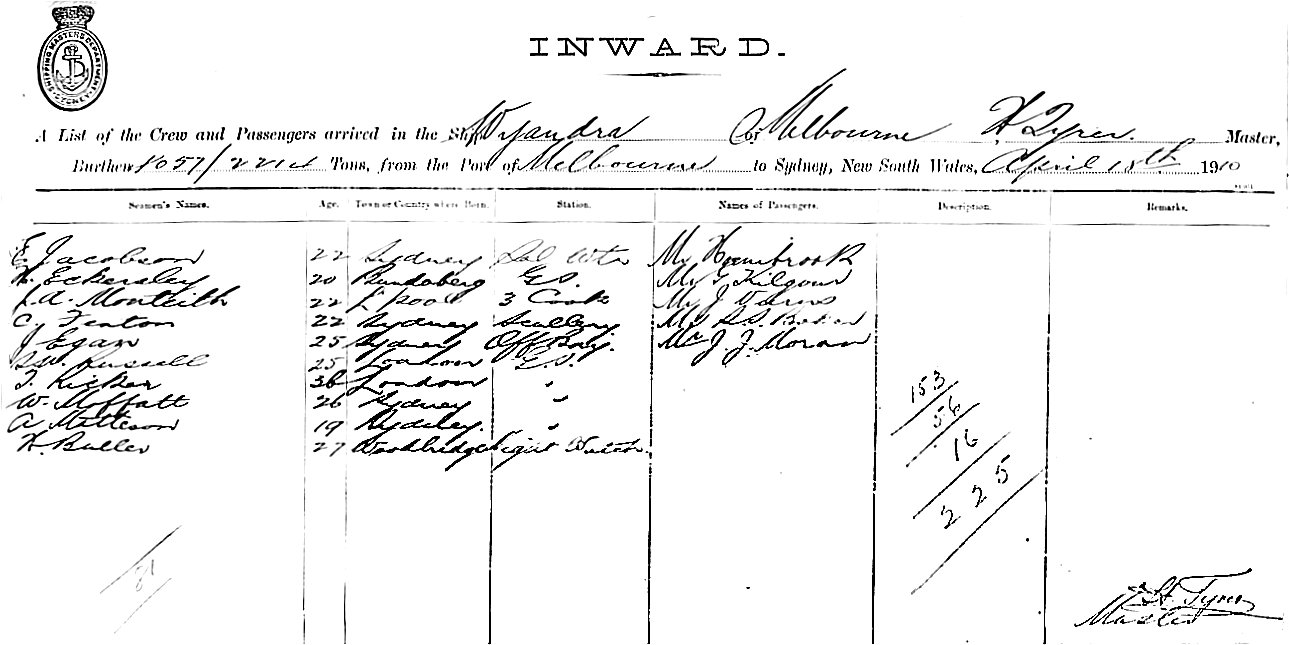 SHIPPING MASTERS DEPARTMENT
SYDNEY
INWARD.
A List of the Crew and Passengers arrived in the Ship Wyandra Of Melbourne H Tyrer. Master,
Burthen 4057/2214 Tons, from the Port of Melbourne to Sydney, New South Wales, April 18th 1910
Seamen's Names. Age. Town or Country where Born. Station. Names of Passengers. Description. Remarks.
E Jacobson 22 Sydney Sal Wtr Mr Hornibrook
H. Eckersley 20 Bundaberg G.S. Mr G Kilgour
J. A. Monteith 22 L'pool 3 Cook Mr J
C. Fenton 22 Sydney Scullery
J Egan 25 Sydney Off Boy. Mr J. J. Moran
Russell 25 London G.S.
T. Ricker 36 London "
W. Moffatt 26 Sydney "
A Matteson 19 Sydney. "
H. Buller 27 Woodbridge Night Watch.
153
56
16
225
81
H. Tyrer
Master